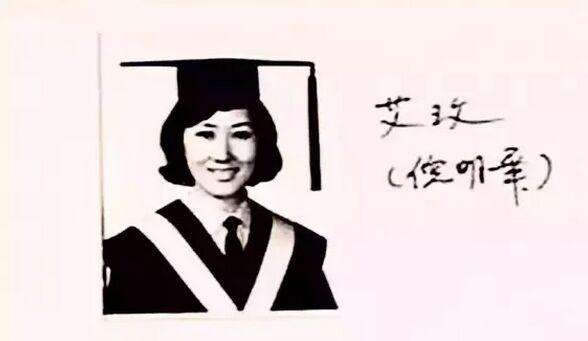 艾玫
(倪明華)